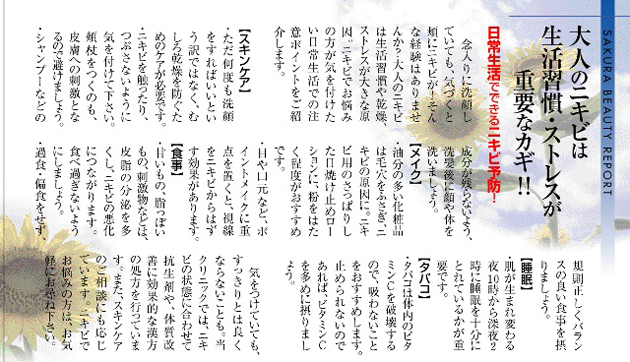 SAKURA BEAUTY REPORT
大人のニキビは
生活習慣・ストレスが
重要なカギ!!
日常生活でできるニキビ予防!
念入りに洗顔し
ていても、気づくと
頬にニキビが!そん
な経験はありませ
んか?大人のニキビ
は生活習慣や乾燥、
ストレスが大きな原
因。ニキビでお悩み
の方が気を付けた
い日常生活での注
意ポイントをご紹
介します。
【スキンケア】
・ただ何度も洗顔
をすればいいとい
う訳ではなく、む
しろ乾燥を防ぐた
めのケアが必要です。
・ニキビを触ったり、
つぶさないように
気を付けて下さい。
頬杖をつくのも、
皮膚への刺激とな
るので避けましょう。
・シャンプーなどの
成分が残らないよう、
洗髪後に顔や体を
洗いましょう。
【メイク】
・油分の多い化粧品
は毛穴をふさぎ、ニ
キビの原因に。ニキ
ビ用のさっぱりし
た日焼け止めロー
ションに、粉をはた
く程度がおすすめ
です。
・目や口元など、ポ
イントメイクに重
点を置くと、視線
をニキビからはず
す効果があります。
【食事】
・甘いもの、脂っぽい
もの、刺激物などは、
皮脂の分泌を多
くし、ニキビの悪化
につながります。
食べ過ぎないよう
にしましょう。
・過食・偏食をせず、
規則正しくバラン
スの良い食事を摂
りましょう。
【睡眠】
・肌が生まれ変わる
夜10時から深夜2
時に睡眠を十分に
とれているかが重
要です。
【タバコ】
・タバコは体内のビタ
ミンCを破壊する
ので、吸わないこと
をおすすめします。
止められないので
あれば、ビタミンC
を多めに摂りまし
ょう。
気をつけていても、
すっきりとは良く
ならないことも。当
クリニックでは、ニキ
ビの状態に合わせて
抗生剤や、体質改
善に効果的な漢方
の処方を行っていま
す。また、スキンケア
のご相談にも応じ
ています。ニキビで
お悩みの方は、お気
軽にお尋ね下さい。